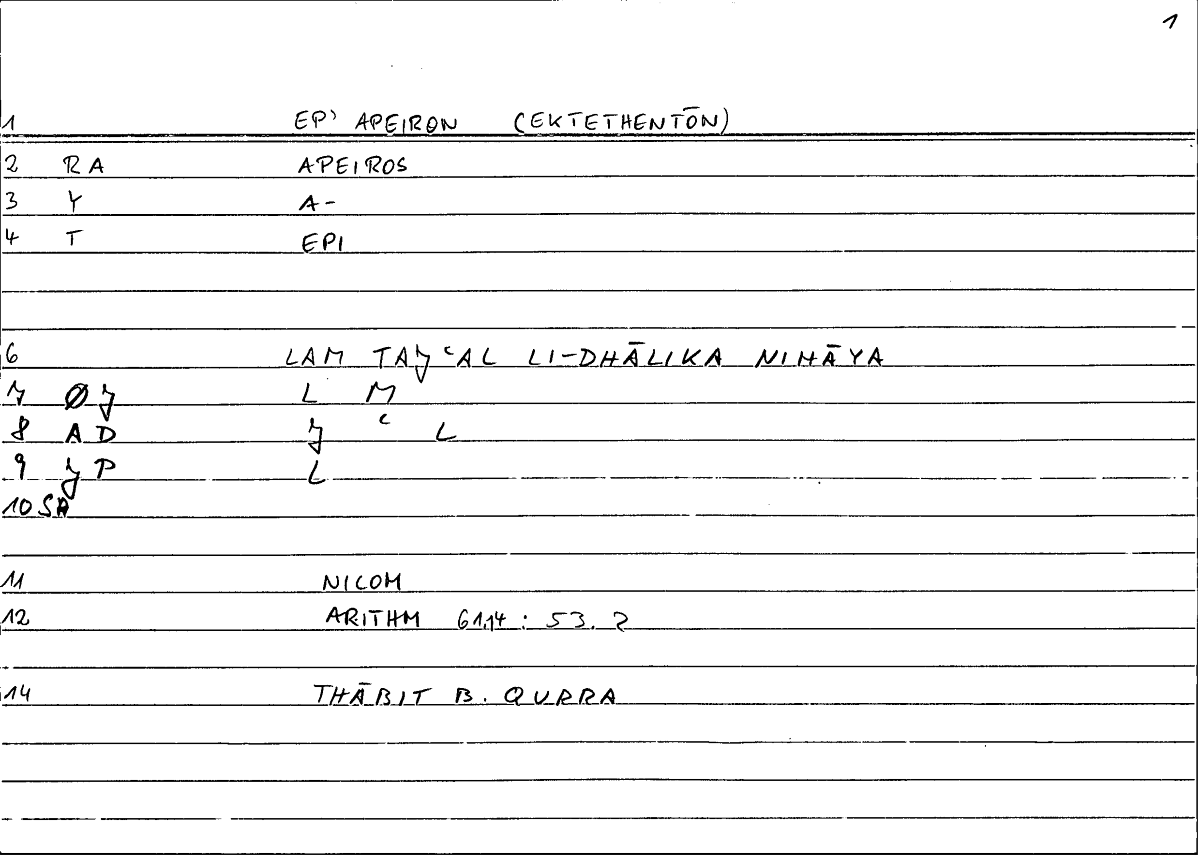 1
1 EP' APEIRON (EKTETHENTŌN)
2 RA APEIROS
3 Y A-
4 T EPI
6 LAM TAJʿAL LI-DHĀLIKA NIHĀYA
7 ØJ L M
8 AD J ʿ L
9 JP L
10 SA
11 NICOM
12 ARITHM 61,14 : 53. 2
14 THĀBIT B. QURRA